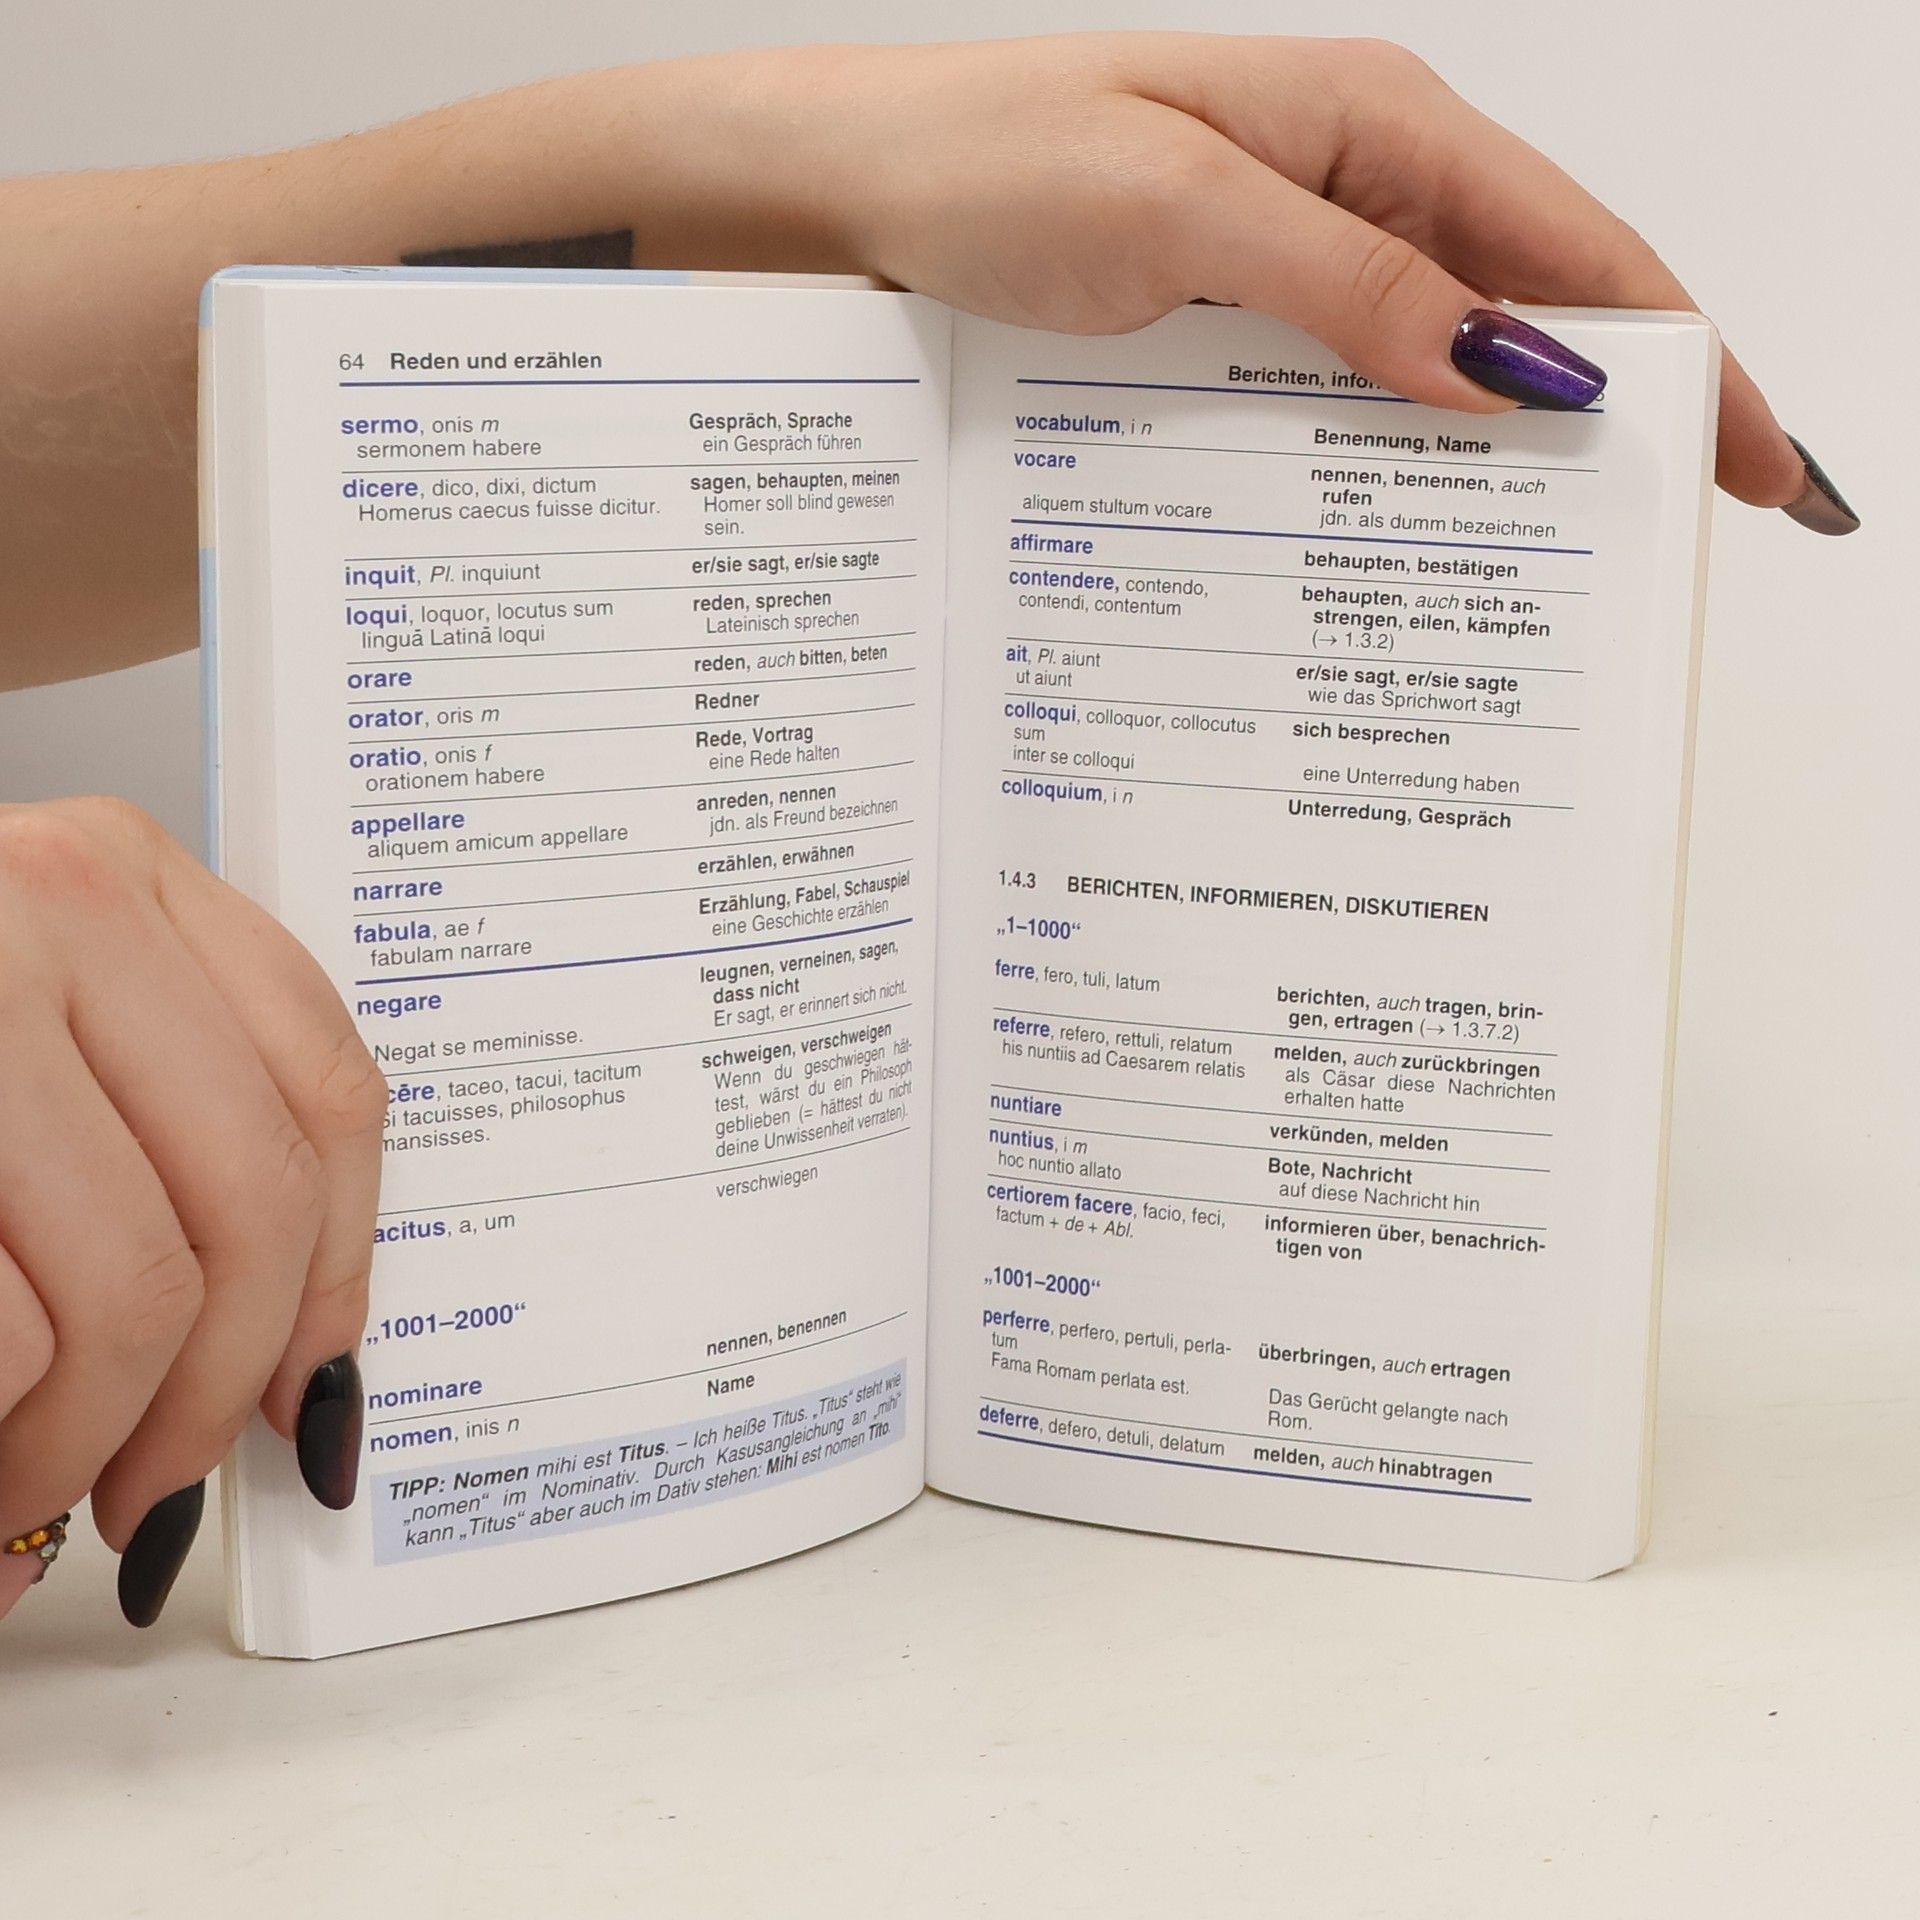 64 Reden und erzählen
sermo, onis m Gespräch, Sprache
sermonem habere ein Gespräch führen
dicere, dico, dixi, dictum sagen, behaupten, meinen
Homerus caecus fuisse dicitur. Homer soll blind gewesen
sein.
inquit, Pl. inquiunt er/sie sagt, er/sie sagte
loqui, loquor, locutus sum reden, sprechen
linguā Latinā loqui Lateinisch sprechen
orare reden, auch bitten, beten
orator, oris m Redner
oratio, onis f Rede, Vortrag
orationem habere eine Rede halten
appellare anreden, nennen
aliquem amicum appellare jdn. als Freund bezeichnen
narrare erzählen, erwähnen
fabula, ae f Erzählung, Fabel, Schauspiel
fabulam narrare eine Geschichte erzählen
negare leugnen, verneinen, sagen,
dass nicht
Negat se meminisse. Er sagt, er erinnert sich nicht.
cēre, taceo, tacui, tacitum schweigen, verschweigen
tacuisses, philosophus Wenn du geschwiegen hät-
mansisses. test, wärst du ein Philosoph
geblieben (= hättest du nicht
deine Unwissenheit verraten).
acitus, a, um verschwiegen
„1001–2000“
nominare nennen, benennen
nomen, inis n Name
TIPP: Nomen mihi est Titus. – Ich heiße Titus. „Titus“ steht wie
„nomen“ im Nominativ. Durch Kasusangleichung an „mihi“
kann „Titus“ aber auch im Dativ stehen: Mihi est nomen Tito.
Berichten,
vocabulum, i n Benennung, Name
vocare nennen, benennen, auch
rufen
aliquem stultum vocare jdn. als dumm bezeichnen
affirmare behaupten, bestätigen
contendere, contendo, behaupten, auch sich an-
contendi, contentum strengen, eilen, kämpfen
(→ 1.3.2)
ait, Pl. aiunt er/sie sagt, er/sie sagte
ut aiunt wie das Sprichwort sagt
colloqui, colloquor, collocutus sich besprechen
sum
inter se colloqui eine Unterredung haben
colloquium, i n Unterredung, Gespräch
1.4.3 BERICHTEN, INFORMIEREN, DISKUTIEREN
„1–1000“
ferre, fero, tuli, latum berichten, auch tragen, brin-
gen, ertragen (→ 1.3.7.2)
referre, refero, rettuli, relatum melden, auch zurückbringen
his nuntiis ad Caesarem relatis als Cäsar diese Nachrichten
erhalten hatte
nuntiare verkünden, melden
nuntius, i m Bote, Nachricht
hoc nuntio allato auf diese Nachricht hin
certiorem facere, facio, feci, informieren über, benachrich-
factum + de + Abl. tigen von
„1001–2000“
perferre, perfero, pertuli, perla- überbringen, auch ertragen
tum
Fama Romam perlata est. Das Gerücht gelangte nach
Rom.
deferre, defero, detuli, delatum melden, auch hinabtragen